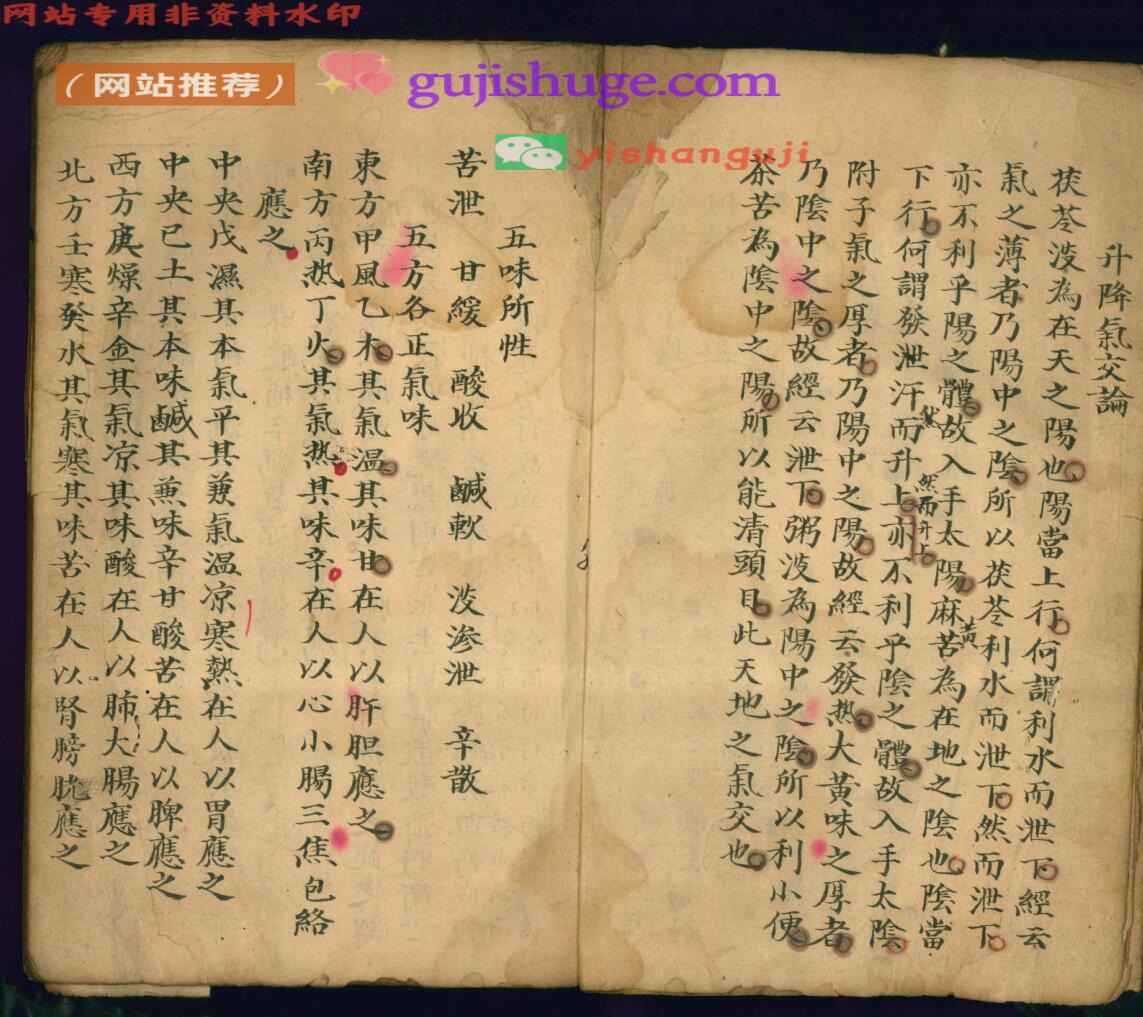 网站专用非资料水印
（网站推荐）
gujishuge.com
yishanguji
升降氣交論
茯苓淡為在天之陽也陽當上行何謂利水而泄下經云
氣之薄者乃陽中之陰所以茯苓利水而泄下然而泄下
亦不利乎陽之體故入手太陽麻黃苦為在地之陰也陰當
下行何謂發泄汗而升上亦不利乎陰之體故入手太陰
然
然而升上
附子氣之厚者乃陽中之陽故經云發热大黃味之厚者
乃陰中之陰故經云泄下粥淡為陽中之陰所以利小便
茶苦為陰中之陽所以能清頭目此天地之氣交也
五味所性
苦泄 甘緩 酸收 鹹軟 淡渗泄 辛散
五方各正氣味
東方甲風乙木其氣温其味甘在人以肝胆應之
南方丙热丁火其氣热其味辛在人以心小腸三焦包絡
應之
中央戊濕其本氣平其兼氣温凉寒熱在人以胃應之
中央己土其本味鹹其兼味辛甘酸苦在人以脾應之
西方庚燥辛金其氣凉其味酸在人以肺大腸應之
北方壬寒癸水其氣寒其味苦在人以腎膀胱應之